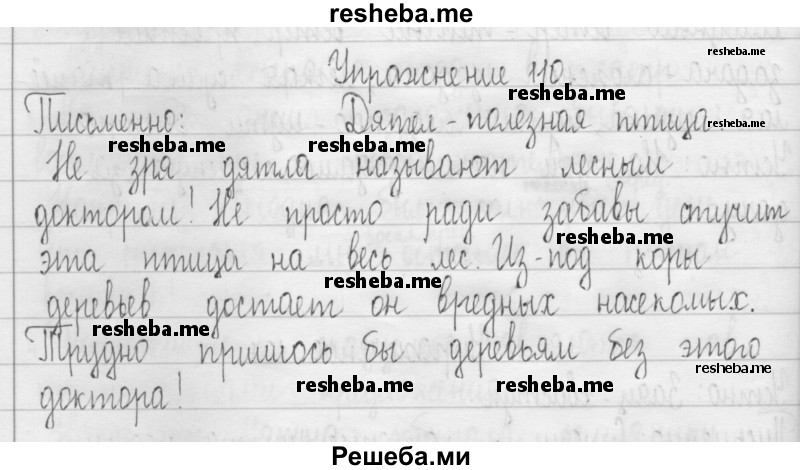 resheba.me
Упражнение 110
resheba.me
resheba.me
Письменно: Дятел - полезная птица.
resheba.me
resheba.me resheba.me
Не зря дятла называют лесным
доктором! Не просто ради забавы стучит
resheba.me
эта птица на весь лес. Из-под коры
деревьев достает он вредных насекомых.
resheba.me
Трудно пришлось бы деревьям без этого
resheba.me
resheba.me resheba.me
доктора!
Решеба.ми